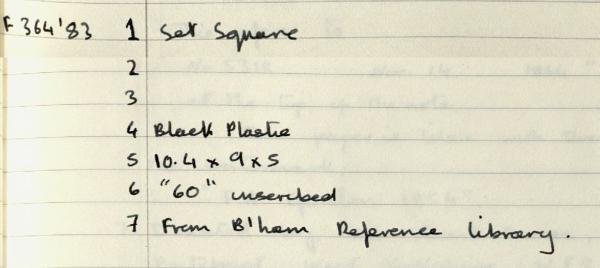 F364'83 1 Set Square
2
3
4 Black Plastic
5 10.4 x 9 x 5
6 "60" inscribed
7 From B'ham Reference Library.